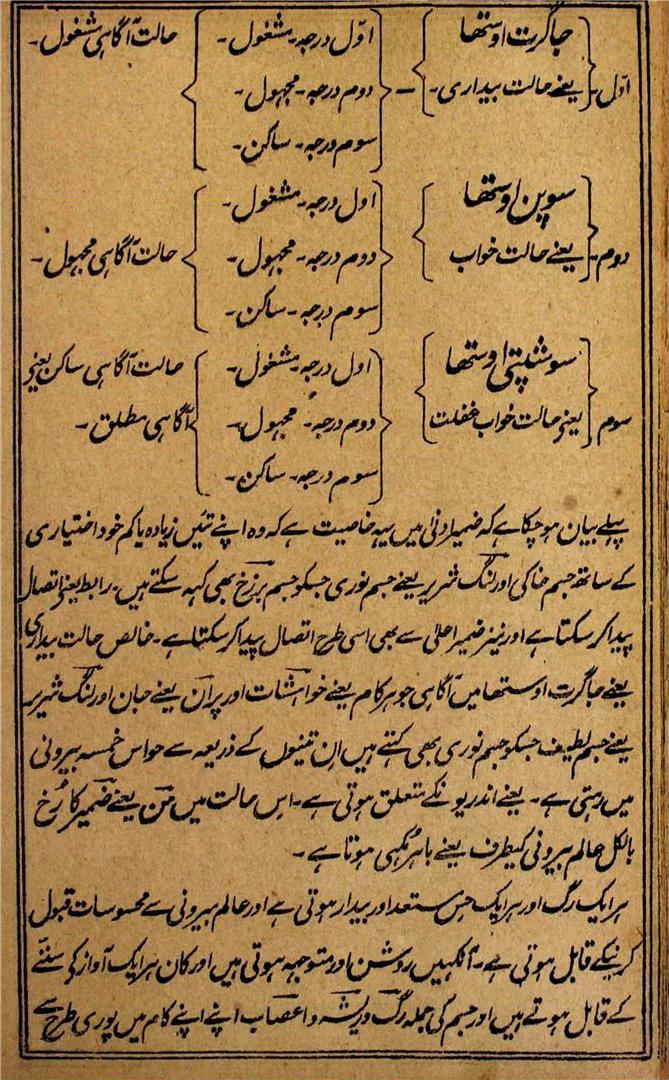 اوّل۔ جاگرت اوستھا یعنے حالت بیداری۔
اوّل درجہ۔ مشغول۔
دوم درجہ۔ مجہول۔
سوم درجہ۔ ساکن۔
حالت آگاہی مشغول۔
دوم۔ سوپن اوستھا یعنے حالت خواب
اول درجہ۔ مشغول۔
دوم درجہ۔ مجہول۔
سوم درجہ۔ ساکن۔
حالت آگاہی مجہول۔
سوم سوشپتی اوستھا یعنی حالت خواب غفلت
اول درجہ۔ مشغول۔
دوم درجہ۔ مجہول۔
سوم درجہ۔ ساکن۔
حالت آگاہی ساکن یعنی
آگاہی مطلق۔
پہلے بیان ہو چکا ہے کہ ضمیر ادنیٰ میں یہہ خاصیت ہے کہ وہ اپنے تئیں زیادہ یا کم خود اختیاری
کے ساتھ جسم خاکی اور لنگ شریر یعنے جسم نوری جسکو جسم برزخ بھی کہہ سکتے ہیں۔ رابطہ یعنی اتصال
پیدا کر سکتا ہے اور نیز ضمیر اعلیٰ سے بھی اسی طرح اتصال پیدا کر سکتا ہے۔ خالص حالت بیداری
یعنے جاگرت اوستھا میں آگاہی جوہر کام یعنے خواہشات اور پران یعنے جان اور لنگ شریر
یعنے جسم لطیف جسکو جسم نوری بھی کہتے ہیں ان تینوں کے ذریعہ سے حواس خمسہ بیرونی
میں رہتی ہے۔ یعنے اندریونکے متعلق ہوتی ہے۔ اس حالت میں من یعنے ضمیر کا رُخ
بالکل عالم بیرونی کیطرف یعنے باہر مُکہی ہوتا ہے۔
ہر ایک رگ اور ہر ایک حِس مستعد اور بیدار ہوتی ہے اور عالم بیرونی سے محسوسات قبول
کرنیکے قابل ہوتی ہے۔ آنکہیں روشن اور متوجہہ ہوتی ہیں اور کان ہر ایک آواز کی سننے
کے قابل ہوتے ہیں اور جسم کی جملہ رگ و ریشہ و اعصاب اپنے اپنے کام میں پوری طرح سے